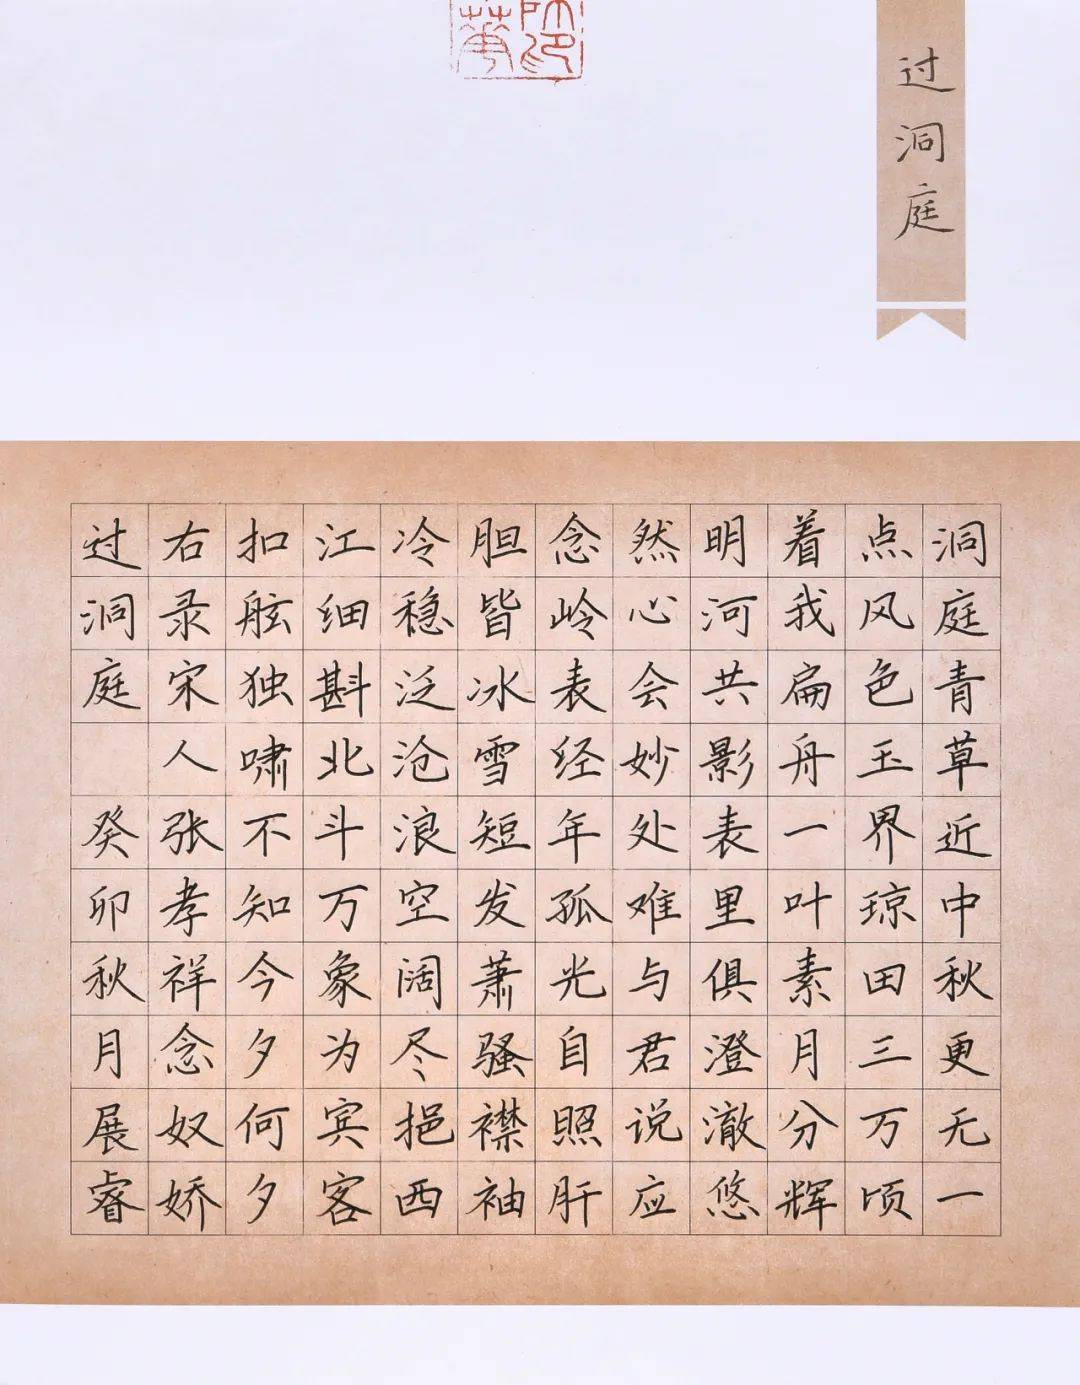 过洞庭
洞庭青草近中秋更无一
点风色玉界琼田三万顷
着我扁舟一叶素月分辉
明河共影表里俱澄澈悠
然心会妙处难与君说应
念岭表经年孤光自照肝
胆皆冰雪短发萧骚襟袖
冷稳泛沧浪空阔尽挹西
江细斟北斗万象为宾客
扣舷独啸不知今夕何夕
右录宋人张孝祥念奴娇
过洞庭 癸卯秋月展睿